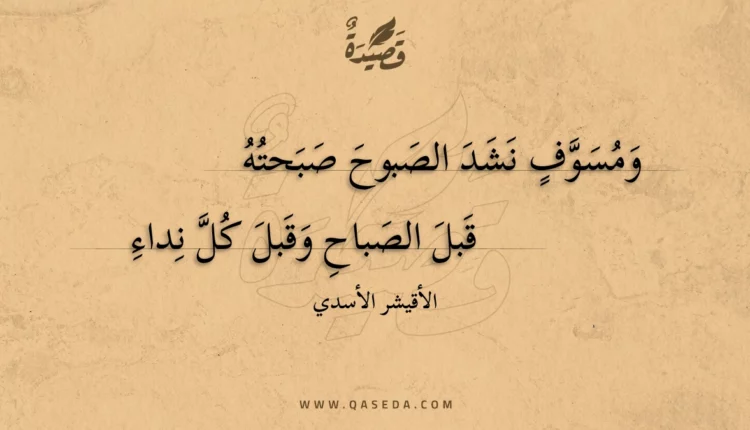 قَصِيْدَةٌ
وَمُسَوَّفٍ نَشَدَ الصَبوحَ صَبَحتُهُ
قَبلَ الصَباحِ وَقَبلَ كُلَّ نِداءِ
الأقيشر الأسدي
WWW.QASEDA.COM